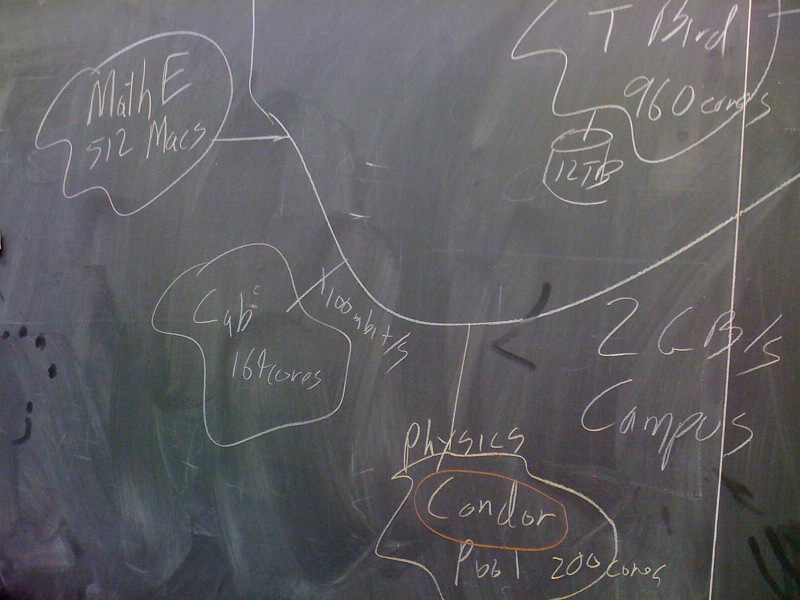 Math E
512 Macs
T Bird
960 cores
12TB
100mbit/s
164cores
2 GB/s
Campus
Physics
Condor
Pool 200 cores